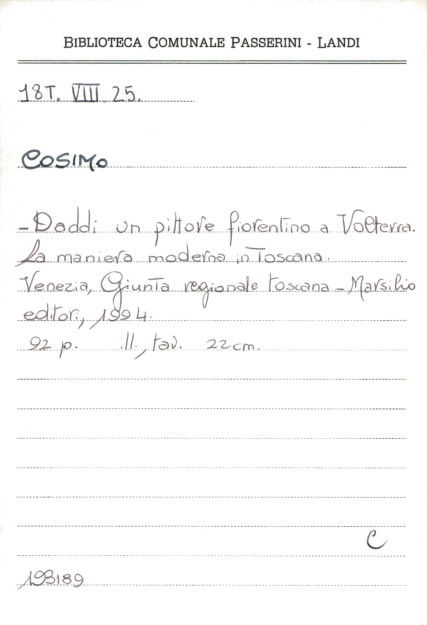 BIBLIOTECA COMUNALE PASSERINI - LANDI
18T. VIII 25.
COSIMO
- Daddi un pittore fiorentino a Volterra.
La maniera moderna in Toscana.
Venezia, Giunta regionale toscana - Marsilio
editori, 1994.
92 p. ill., tav. 22 cm.
C
193189